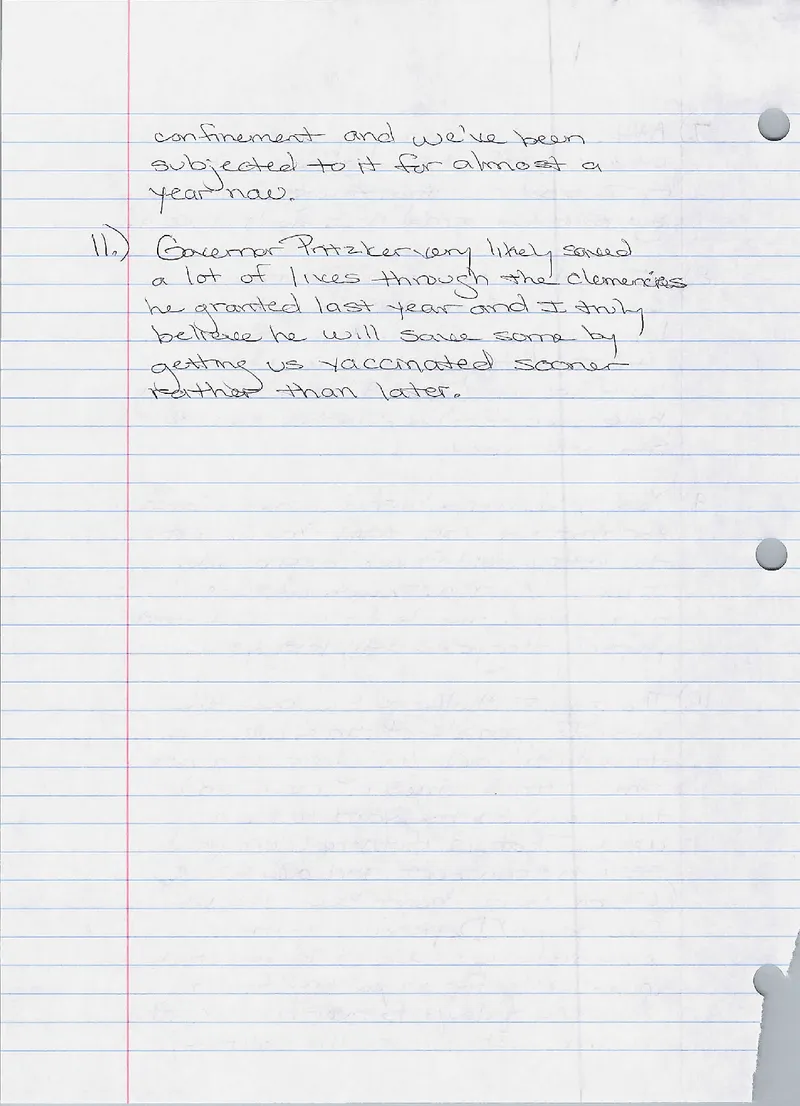 confinement and we've been
subjected to it for almost a
year now.
11.) Governor Pritzker very likely saved
a lot of lives through the clemencies
he granted last year and I truly
believe he will save some by
getting us vaccinated sooner
rather than later.